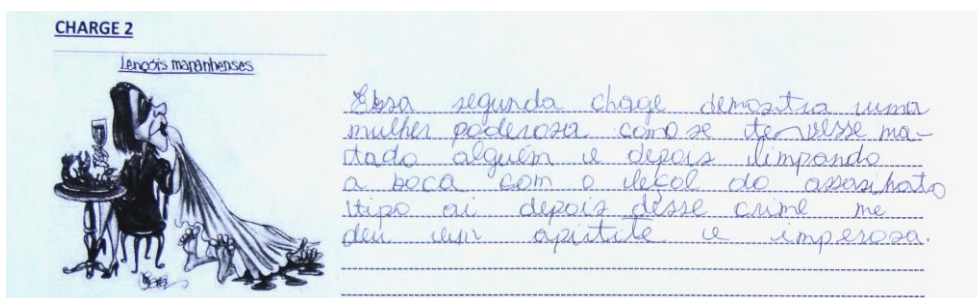 CHARGE 2
Lençóis maranhenses
Essa segunda chage demostra uma
mulher poderosa como se tevesse ma-
tado alguém e depois limpando
a boca com o leçol do assasinato
tipo ai depois desse crime me
deu um apitite e imperosa.